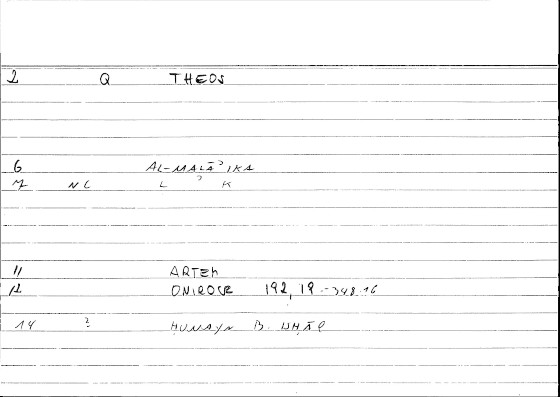 2 Q THEOS
6 AL-MALĀʾIKA
7 NC L ʾ K
11 ARTEM
12 ONIROCR 192, 19 - 348.16
14 ? ḤUNAYN B. ISḤĀQ